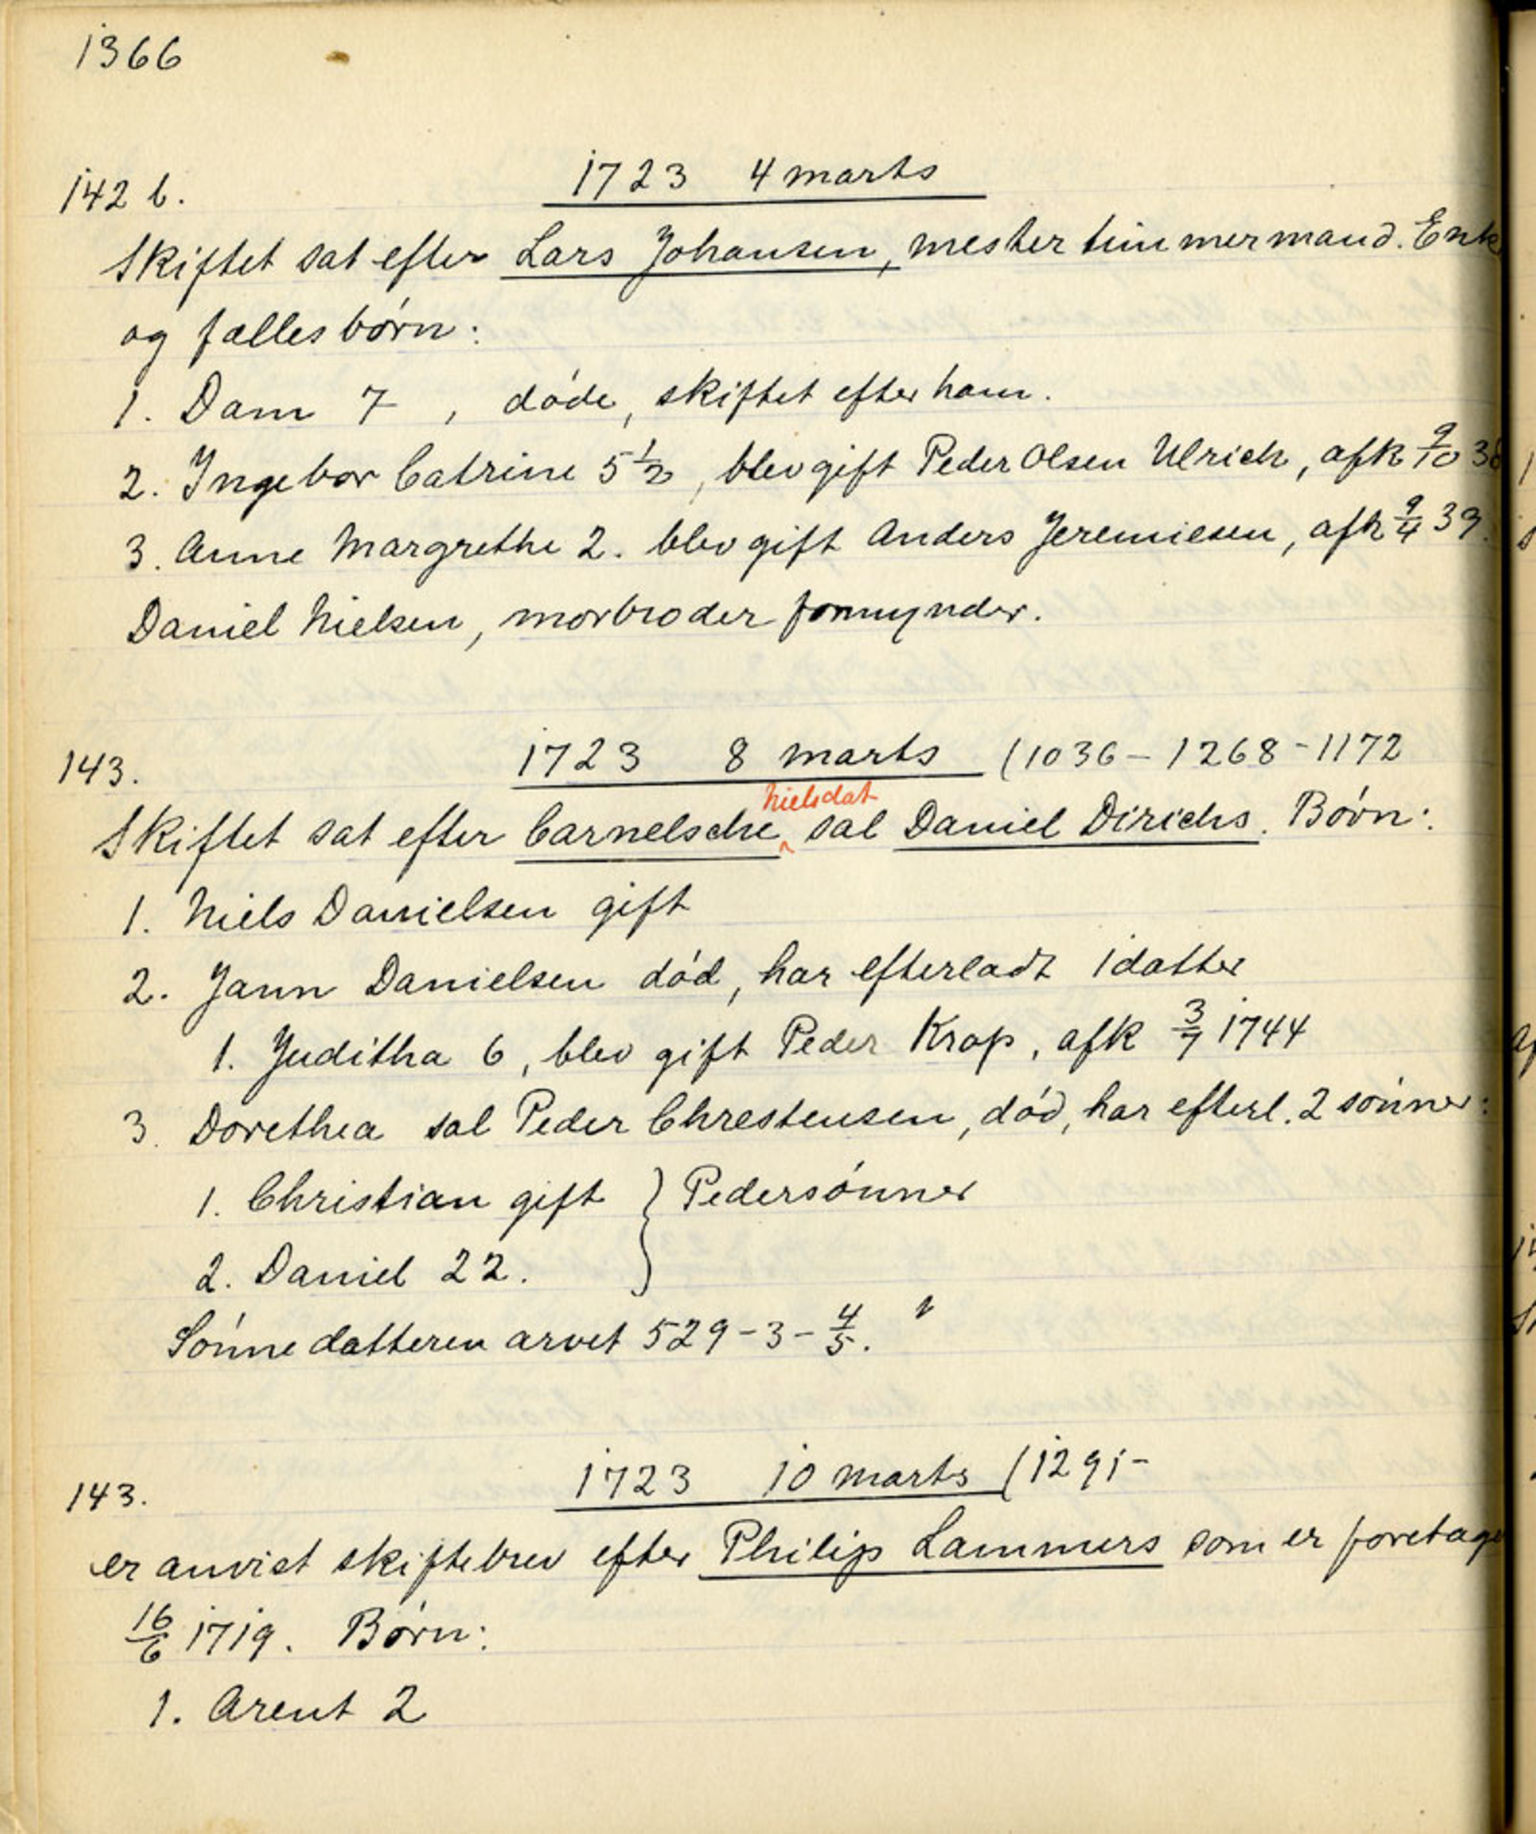 1366
142 b.
1723 4 marts
Skiftet sat efter Lars Johansen, mester timmermand. Enke
og fælles børn:
1. Dam 7 , døde, skiftet efter ham.
2. Ingebor Catrine 5 1/2, blev gift Peder Olsen Ulrich, afk 9/10 38
3. Anne Margrethe 2. blev gift Anders Jeremiesen, afk 9/4 39.
Daniel Nielsen, morbroder formynder.
143.
1723 8 marts (1036 - 1268 - 1172
Nielsdat
Skiftet sat efter Carnelsche ^ sal Daniel Dirichs. Børn:
1. Niels Danielsen gift
2. Jann Danielsen død, har efterladt 1 datter
1. Juditha 6, blev gift Peder Krop, afk 3/7 1744
3. Dorethea sal Peder Chrestensen, død, har efterl. 2 sønner:
1. Christian gift } Pedersønner
2. Daniel 22.
Sønnedatteren arvet 529 - 3 - 4/5.
143.
1723 10 marts (1291 -
er anvist skiftebrev efter Philip Lammers som er foretage
16/6 1719. Børn:
1. Arent 2